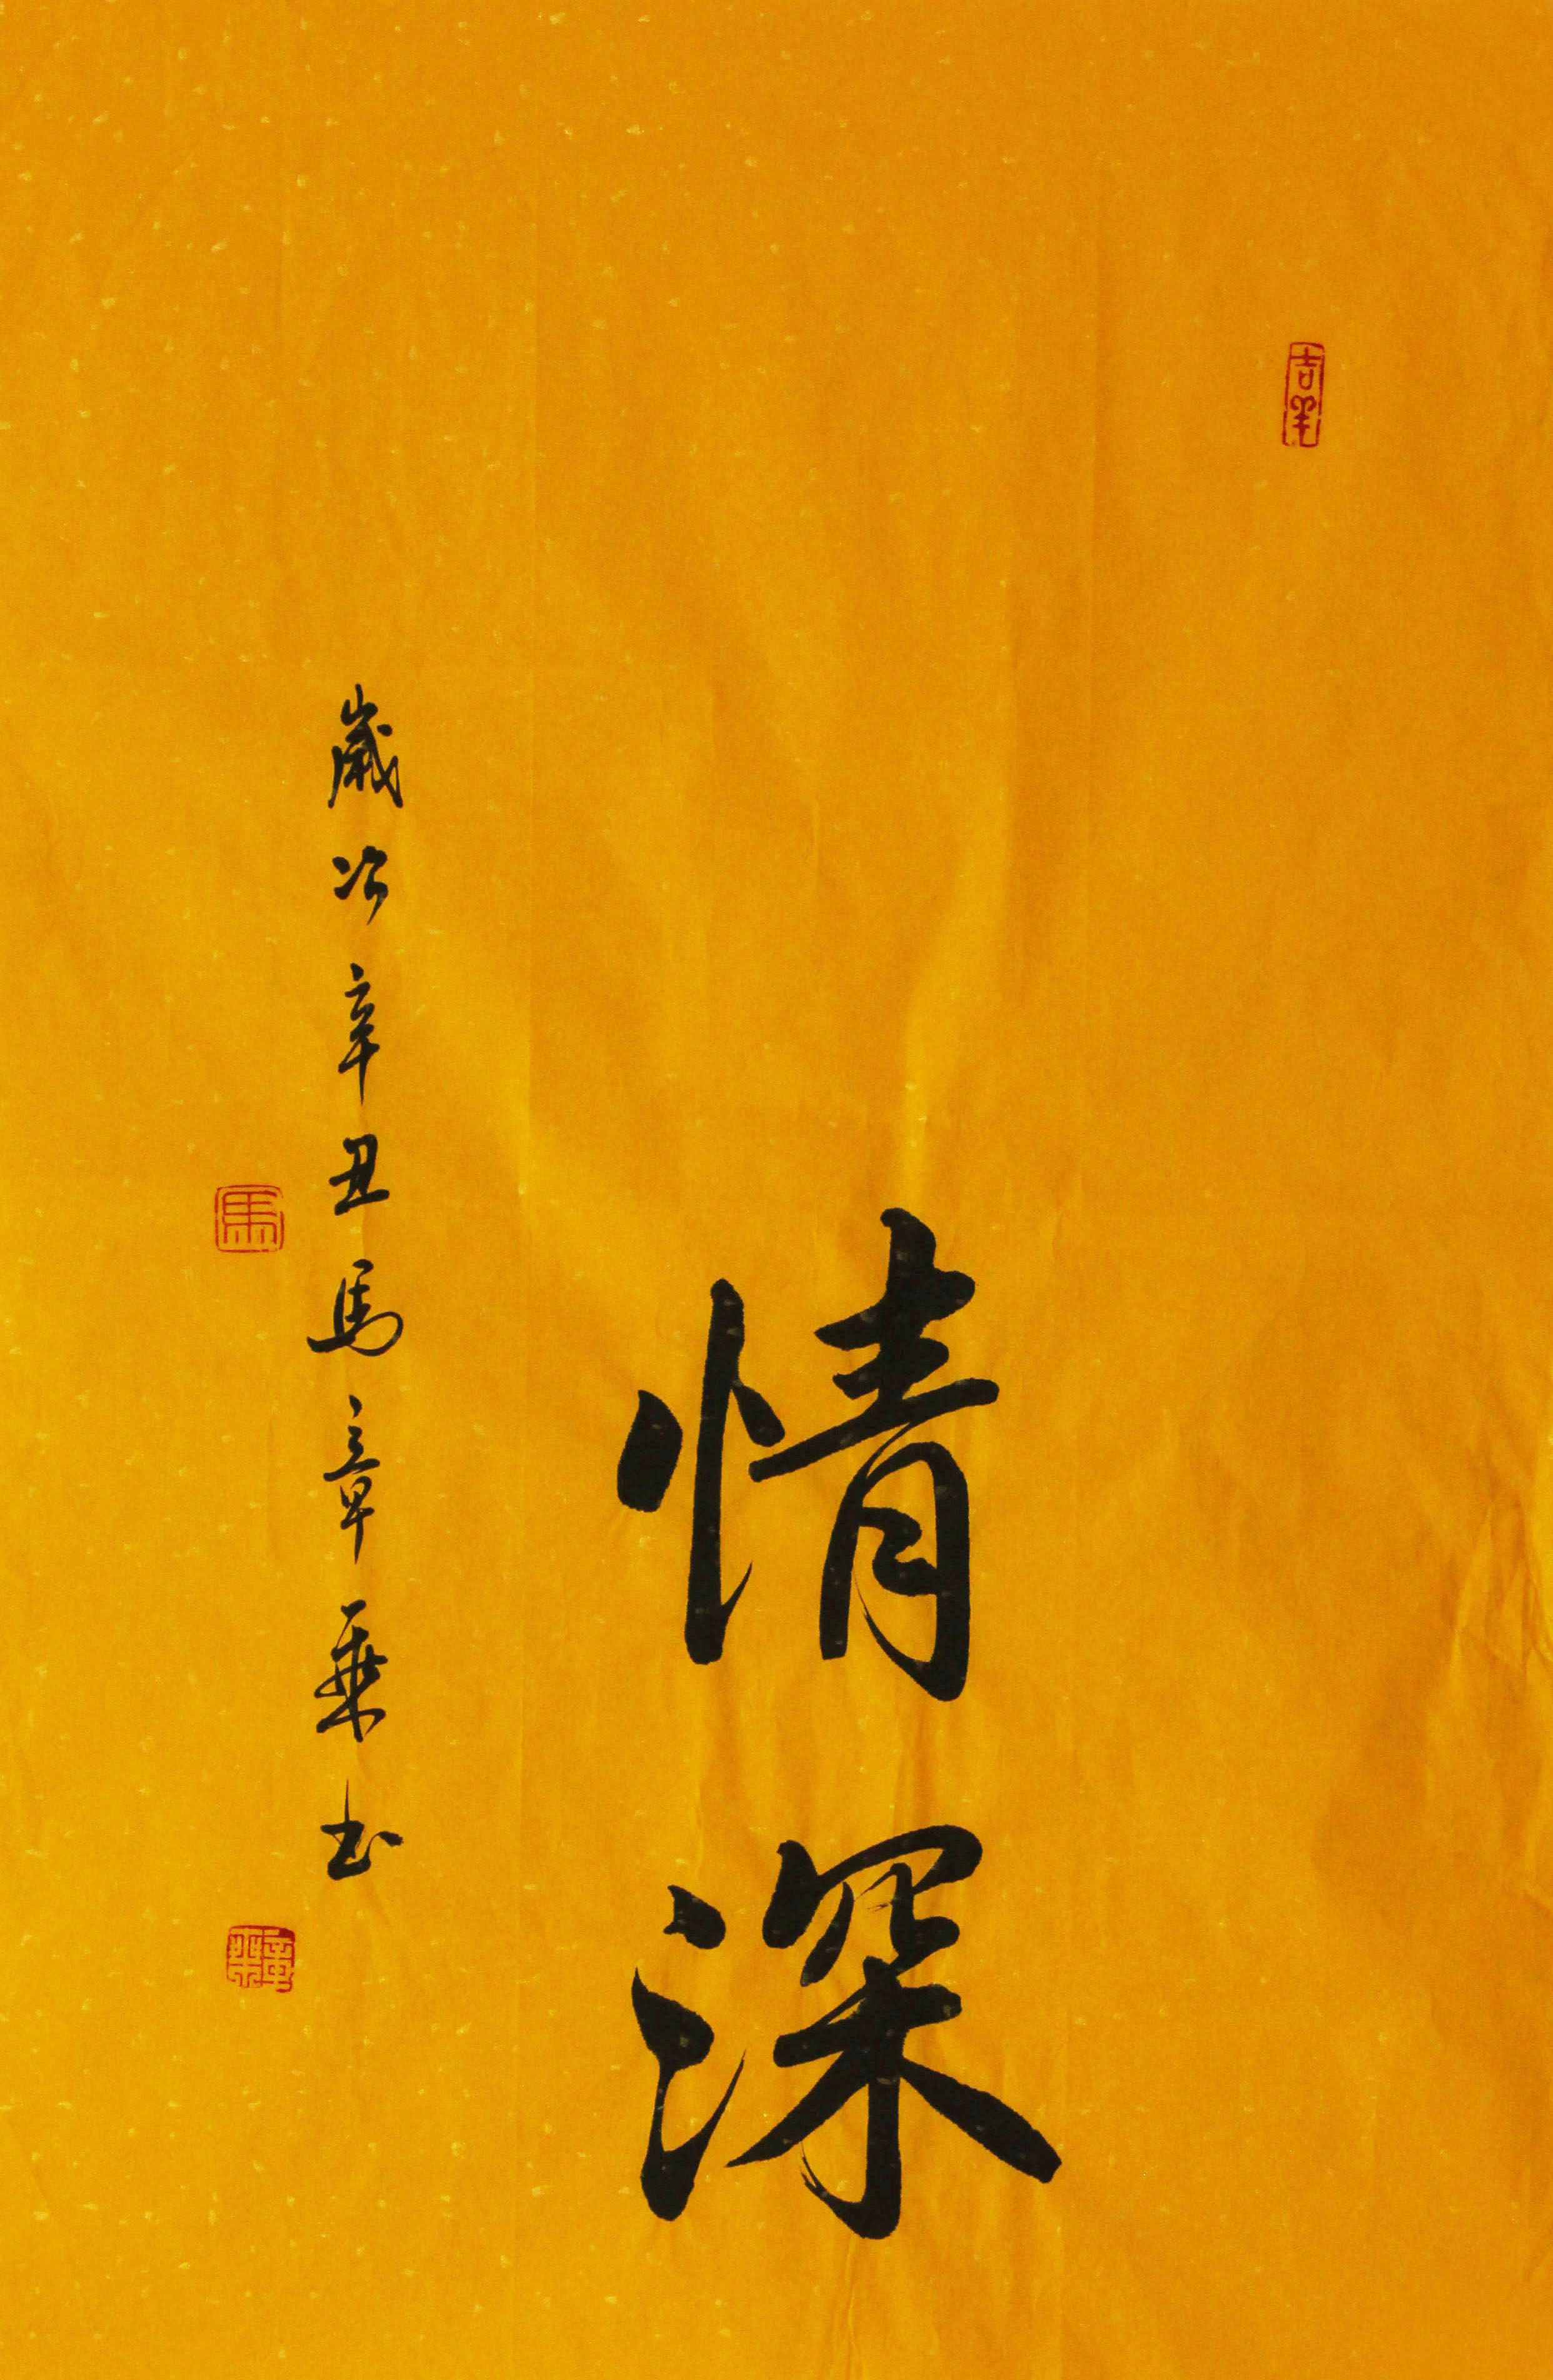 吉羊
情深
歲次辛丑馬章乘书
馬
章乘